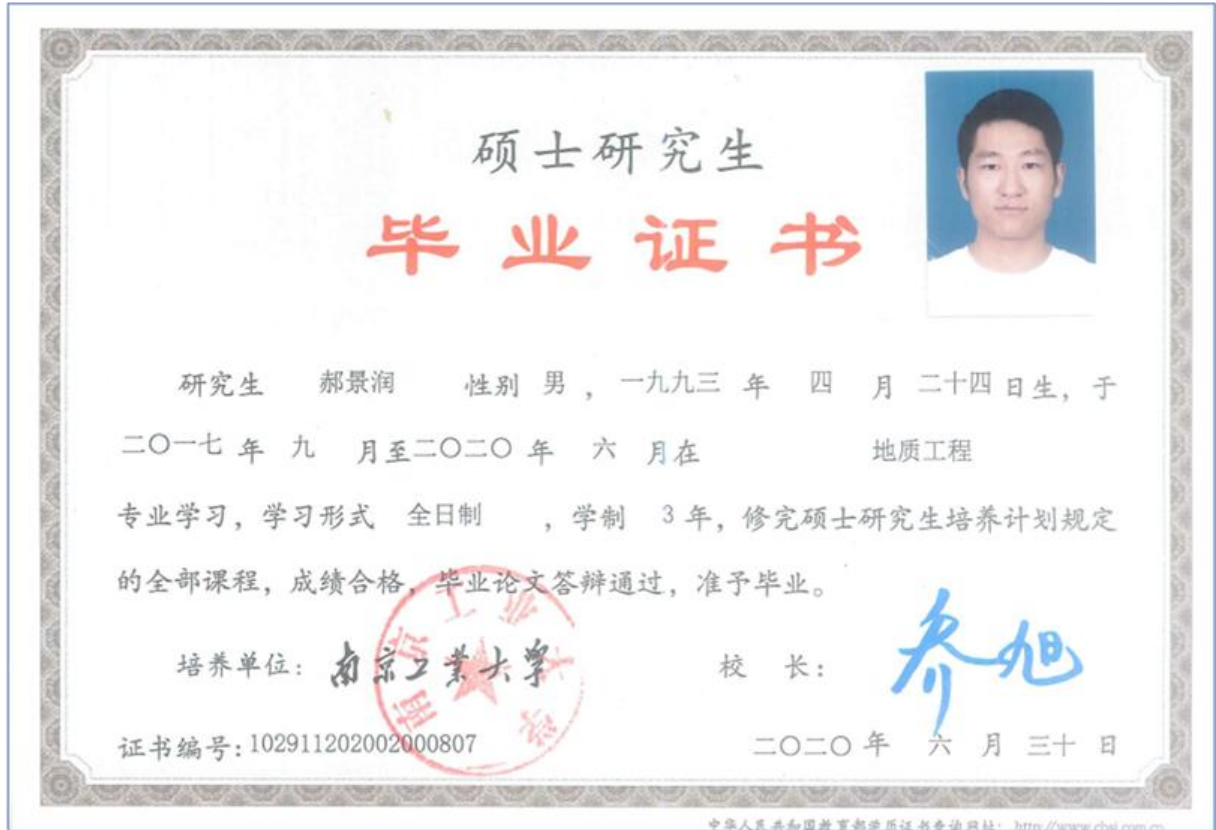 硕士研究生
毕业证书
研究生 郝景润 性别 男 ，一九九三 年 四 月 二十四 日生，于
二〇一七 年 九 月至二〇二〇 年 六 月在 地质工程
专业学习，学习形式 全日制 ，学制 3 年，修完硕士研究生培养计划规定
的全部课程，成绩合格，毕业论文答辩通过，准予毕业。
培养单位：南京工业大学 校 长：乔旭
南京工业大学
证书编号：102911202002000807 二〇二〇 年 六 月 三十 日
中华人民共和国教育部学历证书查询网址： http://www.chsi.com.cn